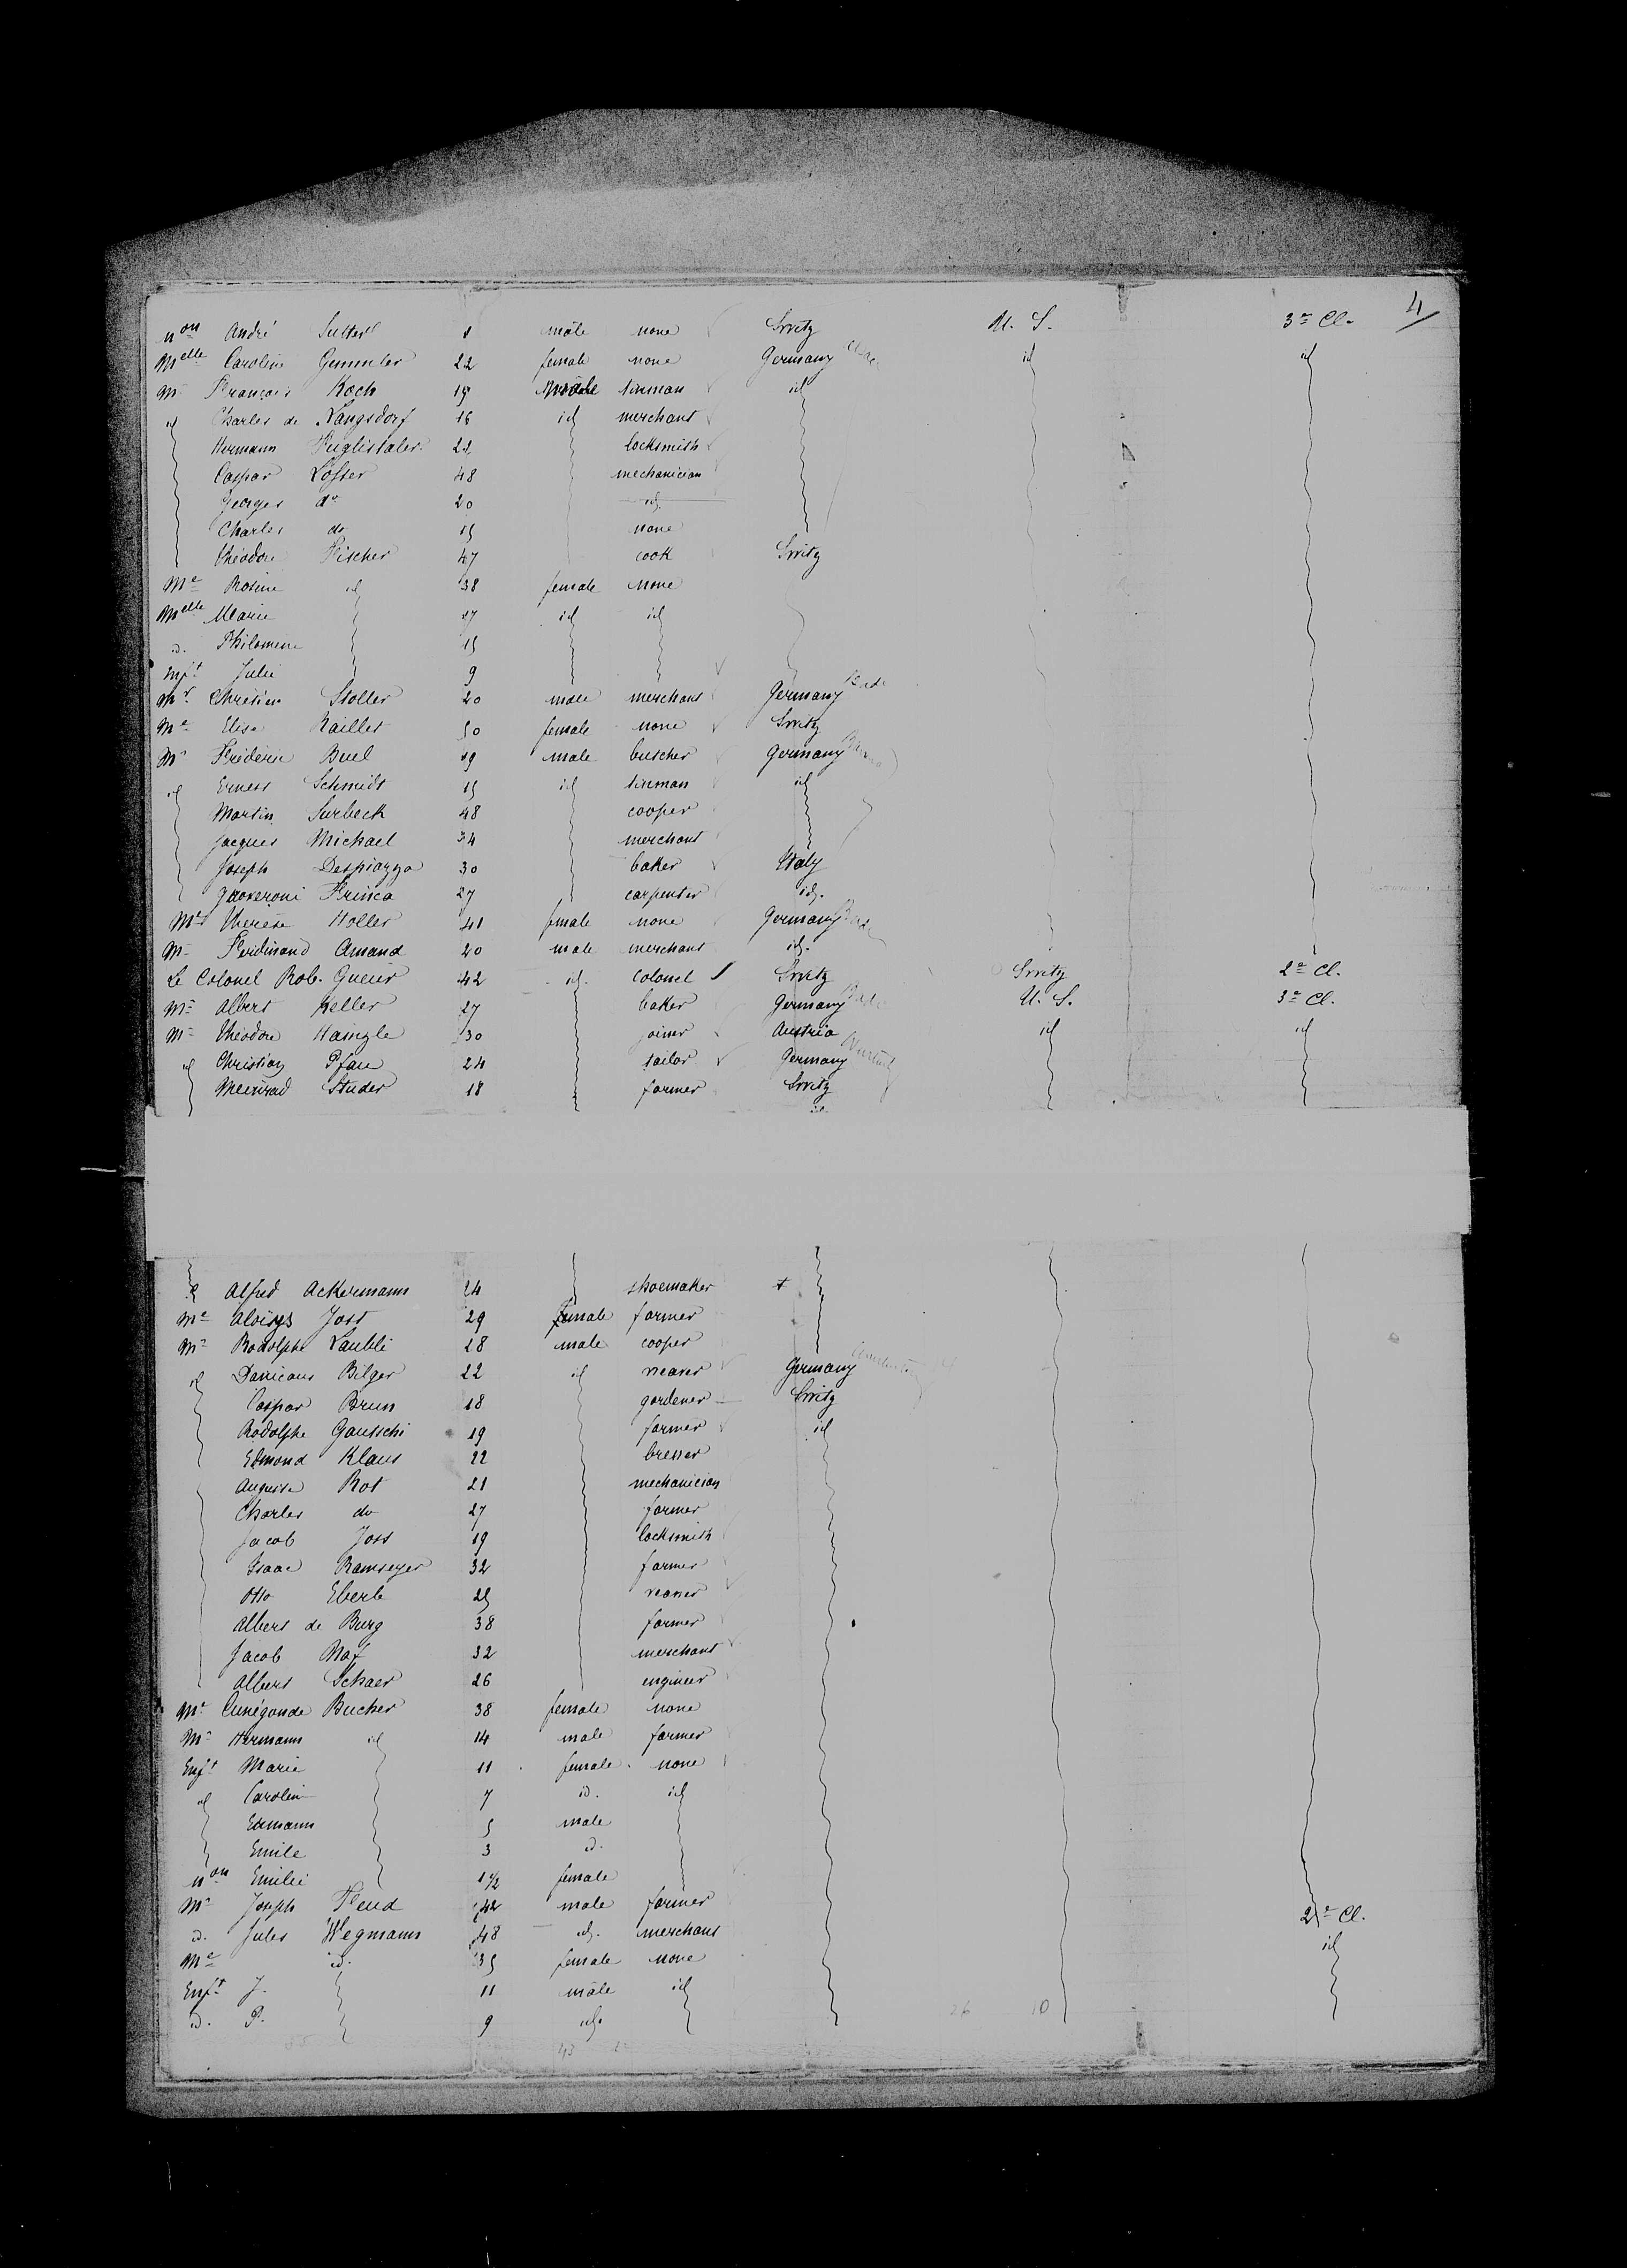 4
non André Sutter 1 male none Switz U. S. 3e Cl.
Melle Caroline Gemmler 22 female none Germany id id
Mr François Koch 19 male tinman id
id Charles de Langsdorf 16 id merchant
Hermann Fuglistaler 22 locksmith
Caspar Löffler 48 mechanician
Georges do 20 id.
Charles do 15 none
Théodore Fischer 47 cook Switz
Me Rosine id 38 female none
Melle Marie 17 id id
d. Philomene 15
Enft Julie 9
Mr. Christian Stoller 20 male merchant Germany Bade
Me Elise Raillet 50 female none Switz
Mr Frédéric Buel 19 male butcher Germany
id Ernest Schmidt 15 id tinman id
Martin Surbeck 48 cooper
Jacques Michael 34 merchant
Joseph Despiazza 30 baker Italy
Frinca 27 carpenter id.
Me Thérèse Holler 41 female none Germany Bade
Mr Ferdinand Amand 20 male merchant id.
Le Colonel Rob. Gueur 42 id. colonel Switz Switz 2e Cl.
Mr Albert Keller 27 baker Germany Bade U. S. 3e Cl.
Mr Théodore Haingle 30 joiner Austria id id
id Christian Pfau 24 tailor Germany
Meinrad Studer 18 farmer Switz
id.
Alfred Ackermann 24 shoemaker +
Me Aloïsys Jost 29 female farmer
Mr Rodolphe Laubli 28 male cooper
id Bilger 22 id weaver Germany
Caspar Brun 18 gardener Switz
Rodolphe Gautschi 19 farmer id
Edmond Klaus 22 bresser
Auguste Rot 21 mechanician
Charles do 27 farmer
Jacob Jost 19 locksmith
Isaac Ramseyer 32 farmer
Otto Eberle 25 weaver
Albert de Burg 38 farmer
Jacob Naf 32 merchant
Albert Schaer 26 engineer
Me Cunégonde Bucher 38 female none
Mr Hermann id 14 male farmer
Enft Marie 11 female none
id Caroline 7 id. id
Edmann 5 male
Emile 3 d.
non Emilie 1 1/2 female
Mr Joseph Feud 42 male farmer 2e Cl.
d. Jules Wegmann 48 id. merchant id
Me id. 35 female none
Enft J. 11 male id
d. P. 9 id.
26 10
43